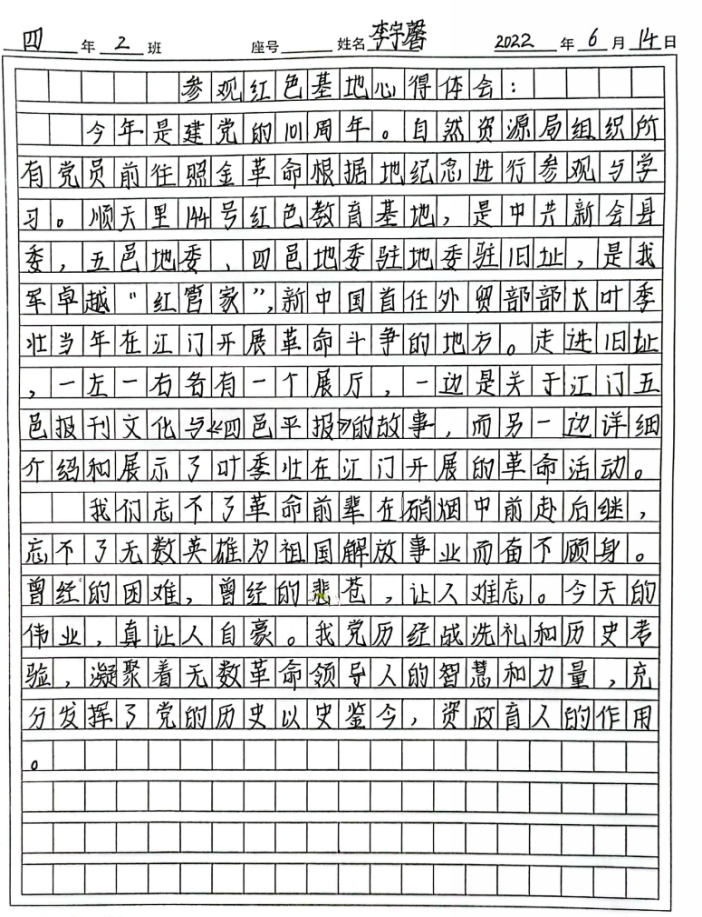 四 年 2 班 座号 姓名 李宇馨 2022 年 6 月 14 日
参观红色基地心得体会：
今年是建党的101周年。自然资源局组织所
有党员前往照金革命根据地纪念进行参观与学
习。顺天里144号红色教育基地，是中共新会县
委，五邑地委、四邑地委驻地委驻旧址，是我
军卓越“红管家”，新中国首任外贸部部长叶季
壮当年在江门开展革命斗争的地方。走进旧址
，一左一右各有一个展厅，一边是关于江门五
邑报刊文化与《四邑平报》的故事，而另一边详细
介绍和展示了叶季壮在江门开展的革命活动。
我们忘不了革命前辈在硝烟中前赴后继，
忘不了无数英雄为祖国解放事业而奋不顾身。
曾经的困难，曾经的悲苍，让人难忘。今天的
伟业，真让人自豪。我党历经战洗礼和历史考
验，凝聚着无数革命领导人的智慧和力量，充
分发挥了党的历史以史鉴今，资政育人的作用
。